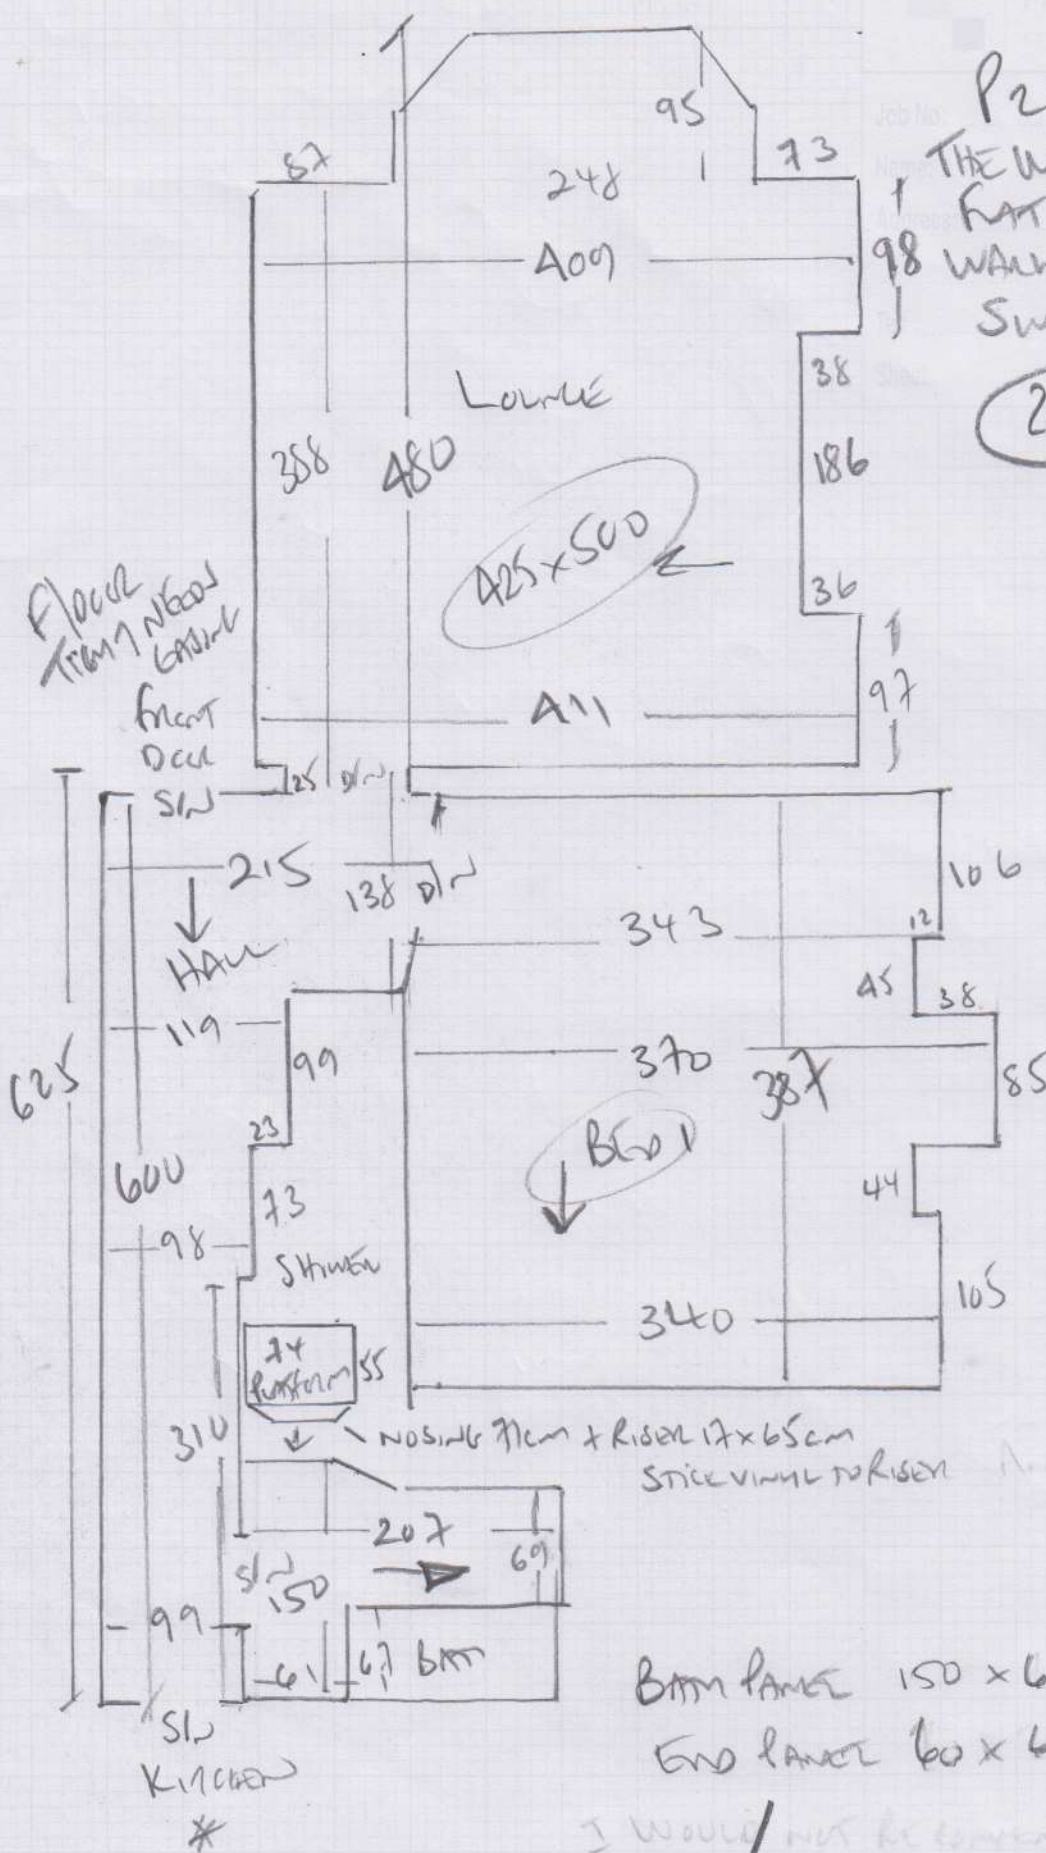 P2
Job No:
Name:
THE W
FLAT
Address:
WALK
SW
Sheet
2
95
87
73
248
409
98
LOUNGE
38
358
480
186
425 x 500
36
FLOOR
NEEDS
FRONT
DOOR
411
97
25 D/N
S/N
215
138 D/N
106
343
12
HALL
45
38
119
99
370
387
85
625
23
BED 1
600
73
44
98
SHOWER
105
340
74
PLATFORM
55
310
NOSING 71cm + RISER 17x65cm
STICK VINYL TO RISER
207
69
S/N
150
99
61
67
BATH
BATH PANEL 150 x 6
END PANEL 60 x 6
S/N
KITCHEN
*
I WOULD NOT